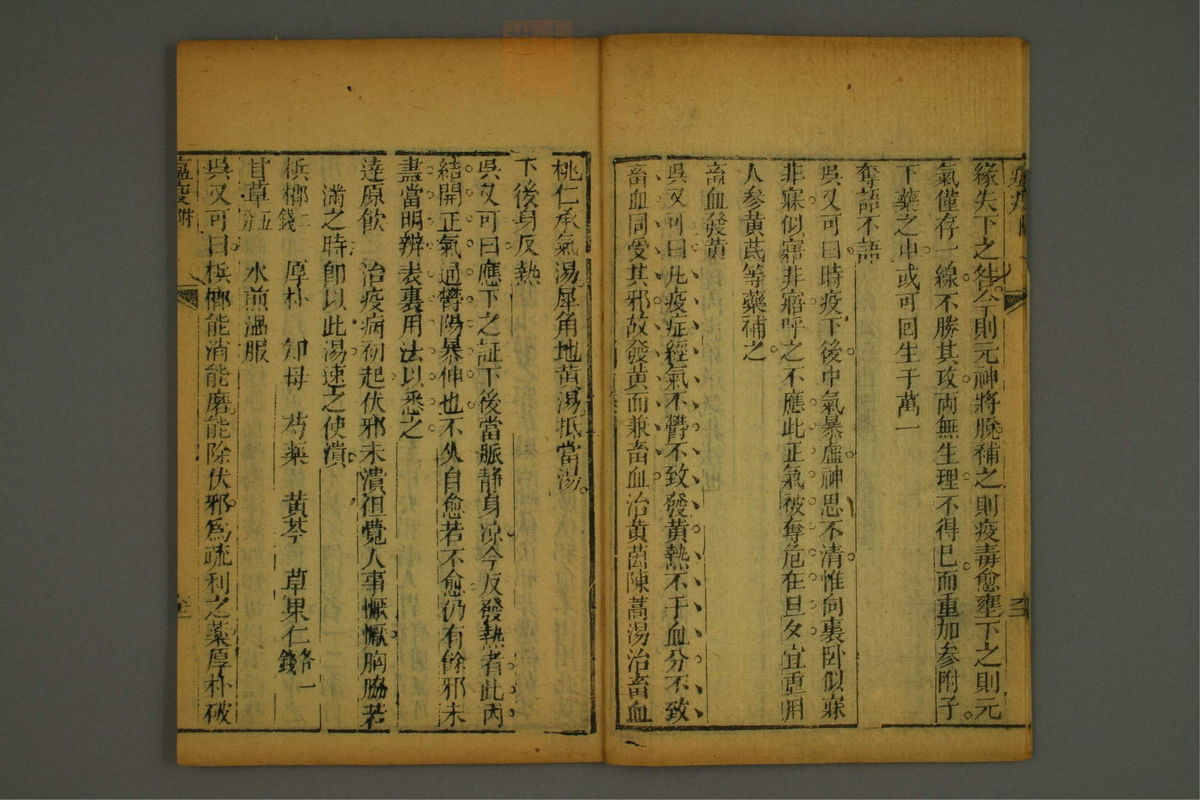 緣失下之咎今則元神將脫補之則疫毒愈壅下之則元
氣僅存一線不勝其攻兩無生理不得已而重加參附子
下藥之中或可回生于萬一
奪語不語
吳又可曰時疫下後中氣暴虛神思不清惟向裏卧似寐
非寐似寤非寤呼之不應此正氣被奪危在旦夕宜重用
人參黃茋等藥補之
畜血發黃
吳又可曰凡疫症經氣不欝不致發黃熱不于血分不致
畜血同受其邪故發黃而兼畜血治黃茵陳蒿湯治畜血
桃仁承氣湯犀角地黃湯抵當湯
下後身反熱
吳又可曰應下之証下後當脈静身凉今反發熱者此內
結開正氣通欝陽暴伸也不久自愈若不愈仍有餘邪未
盡當明辨表裏用法以悉之
達原飲 治疫病初起伏邪未潰但覺人事懨懨胸脇若
滿之時卽以此湯速之使潰
梹榔二錢 厚朴 知母 芍藥 黃芩 草果仁各一錢
甘草五分 水煎溫服
吳又可曰梹榔能消能磨能除伏邪爲疏利之藥厚朴破
瘟疫附